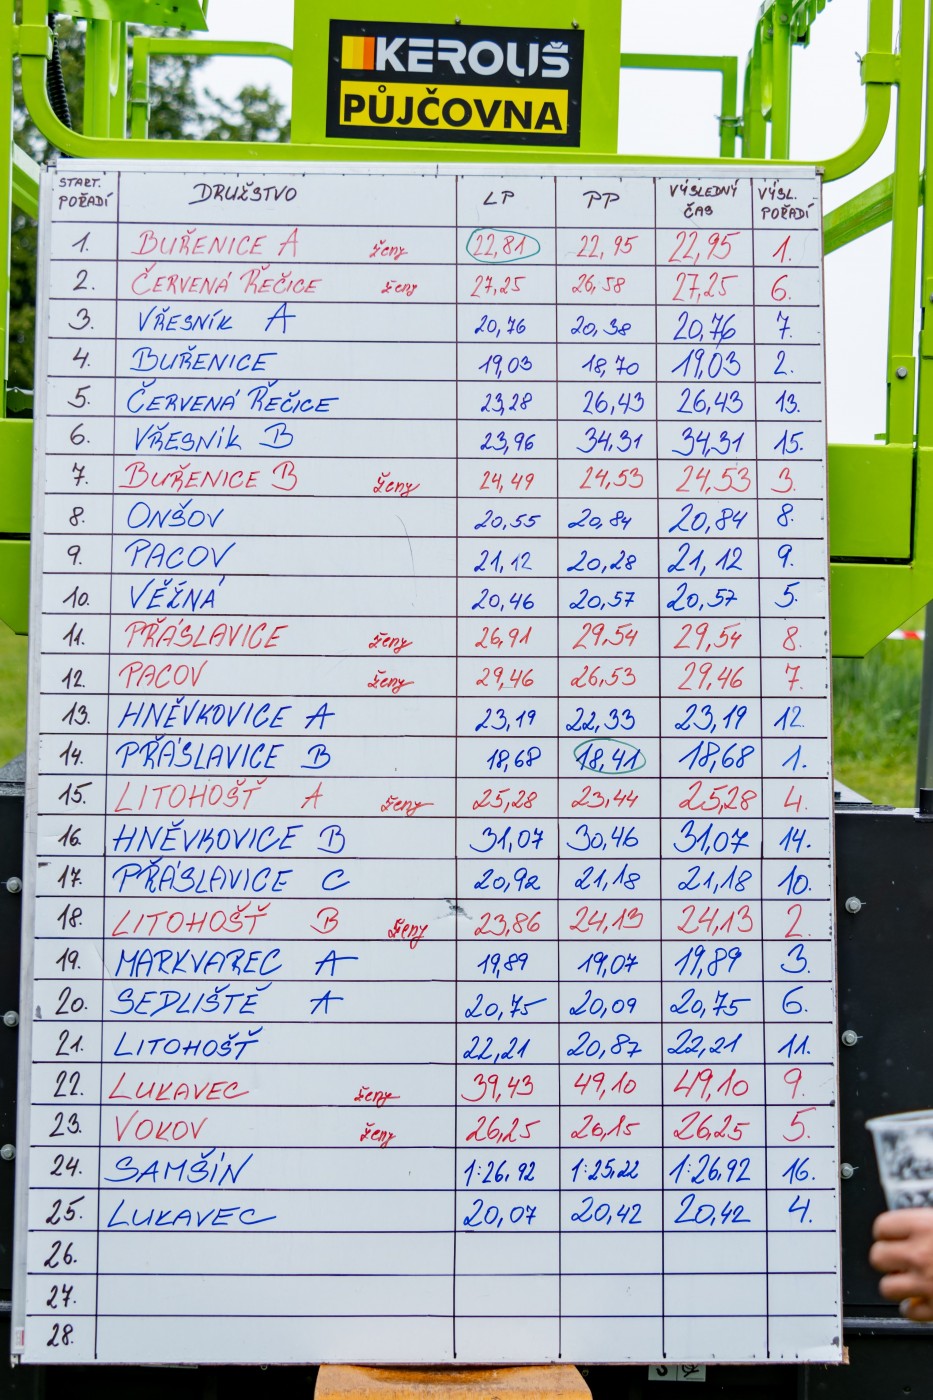 KEROUŠ
PŮJČOVNA
START. POŘADÍ DRUŽSTVO LP PP VÝSLEDNÝ ČAS VÝSL. POŘADÍ
1. BUŘENICE A ženy 22,81 22,95 22,95 1.
2. ČERVENÁ ŘEČICE ženy 27,25 26,58 27,25 6.
3. VŘESNÍK A 20,76 20,38 20,76 7.
4. BUŘENICE 19,03 18,70 19,03 2.
5. ČERVENÁ ŘEČICE 23,28 26,43 26,43 13.
6. VŘESNÍK B 23,96 34,31 34,31 15.
7. BUŘENICE B ženy 24,49 24,53 24,53 3.
8. ONŠOV 20,55 20,84 20,84 8.
9. PACOV 21,12 20,28 21,12 9.
10. VĚŽNÁ 20,46 20,57 20,57 5.
11. PŘÁSLAVICE ženy 26,91 29,54 29,54 8.
12. PACOV ženy 29,46 26,53 29,46 7.
13. HNĚVKOVICE A 23,19 22,33 23,19 12.
14. PŘÁSLAVICE B 18,68 18,41 18,68 1.
15. LITOHOŠŤ A ženy 25,28 23,44 25,28 4.
16. HNĚVKOVICE B 31,07 30,46 31,07 14.
17. PŘÁSLAVICE C 20,92 21,18 21,18 10.
18. LITOHOŠŤ B ženy 23,86 24,13 24,13 2.
19. MARKVAREC A 19,89 19,07 19,89 3.
20. SEDLIŠTĚ A 20,75 20,09 20,75 6.
21. LITOHOŠŤ 22,21 20,87 22,21 11.
22. LUKAVEC ženy 39,43 49,10 49,10 9.
23. VOKOV ženy 26,25 26,15 26,25 5.
24. SAMŠÍN 1:26,92 1:25,22 1:26,92 16.
25. LUKAVEC 20,07 20,42 20,42 4.
26.
27.
28.